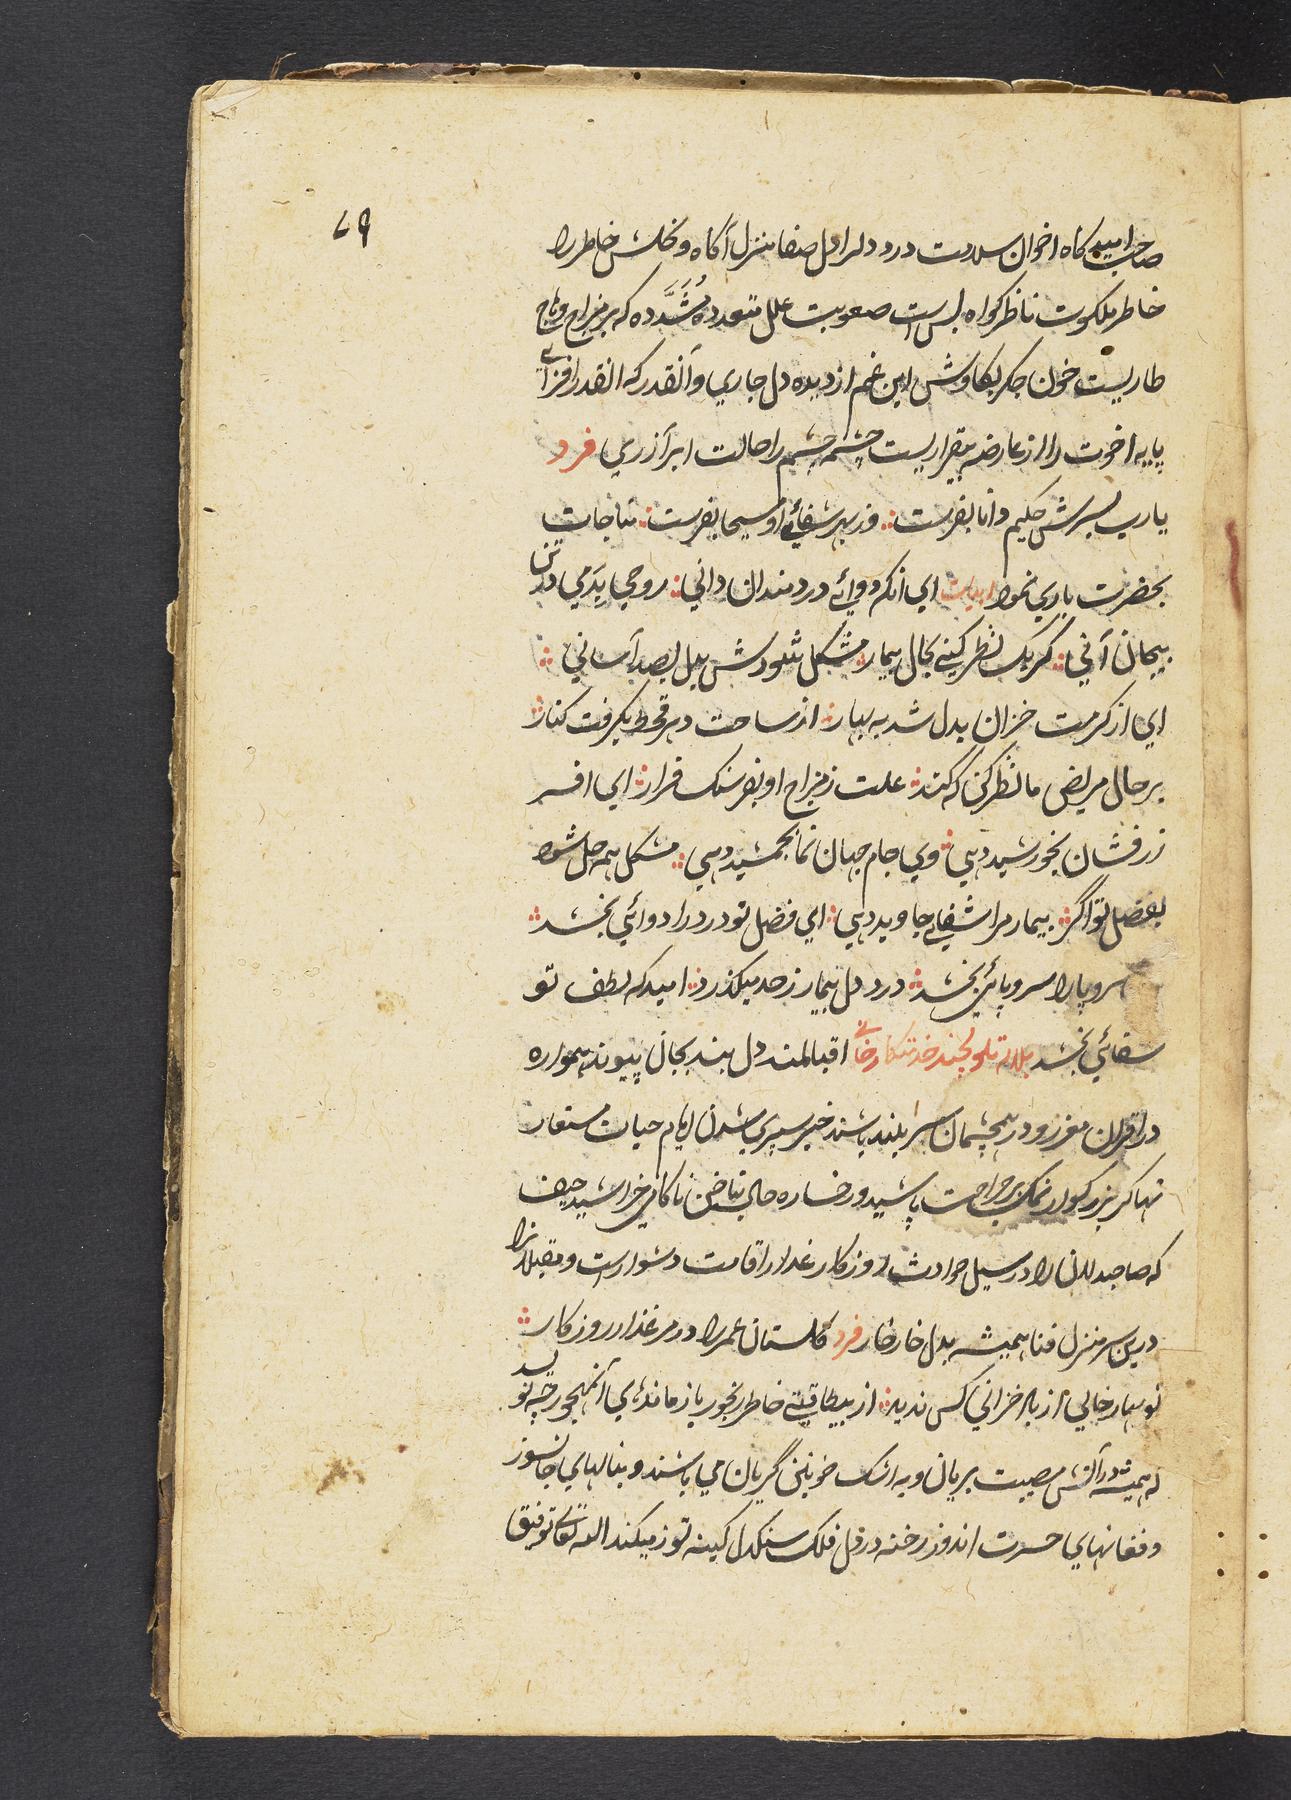 ۶۹
صاحب امیدگاه اخوان سلامت درد دلرا دل صفا منزل آگاه و خلش خاطر را
خاطر ملکوت ناظر گواه بس است صعوبت علل متعدده مُشَدَّده که بر مزاج وهاج
طاریست خون جگر بکاوش این غم از دیده دل جاری و آنقدر که القدر افزای
پایه اخوت را از عارضه بیقراریست چشمه چشم را حالت ابر آزری فرد
یارب بسرش حکیم دانا بفرست وز بهر شفای او مسیحا بفرست مناجات
بحضرت باری نمود ابیات ای آنکه دوائے دردمندان دانی روحی بدمی در تن
بیجان آنی گر یک نظر کنے بحال بیمار مشکل شودش بدل بصد آسانی
ای از کرمت خزان بدل شد به بهار از ساحت دهر قحط بگرفت کنار
بر حال مریض ما نظر کن که کند علت ز مزاج او بفرسنگ فرار ای افسر
زرفشان بخورشید دهی وی جام جهان نما بجمشید دهی مشکل همه حل شود
بفضل تو اگر بیمار مرا شفای جاوید دهی ای فضل تو درد را دوائی بخشد
سر و پا را سر و پائی بخشد درد دل بیمار ز حد میگذرد امید که لطف تو
شفائی بخشد خدمتکار خانی اقبالمند دل بند بجان پیوند همواره
در اقران معزز و در همچشمان سر بلند باشند خبر سپری شدن ایام حیات مستعار
بزرگوار نمک بر جراحت پاشید و رخساره حال بناخن ناکامی خراشید حیف
که صاحبدلان را در سیل حوادث روزگار غدار اقامت دشوارست و مقبلانرا
درین سر منزل فنا همیشه بدل خار خار فرد گلستان عمر را در مرغذار روزگار
نو بهار خالی از باد خزانی کس ندید از بیطاقتے خاطر رنجور بازماندهای آن
که همیشه در آتش مصیبت بریان و به اشک خونین گریان می باشند و بنالهای جانسوز
و فغانهای حسرت اندوز رخنه در دل فلک سنگدل کینه توز میکنند الله تعالی توفیق